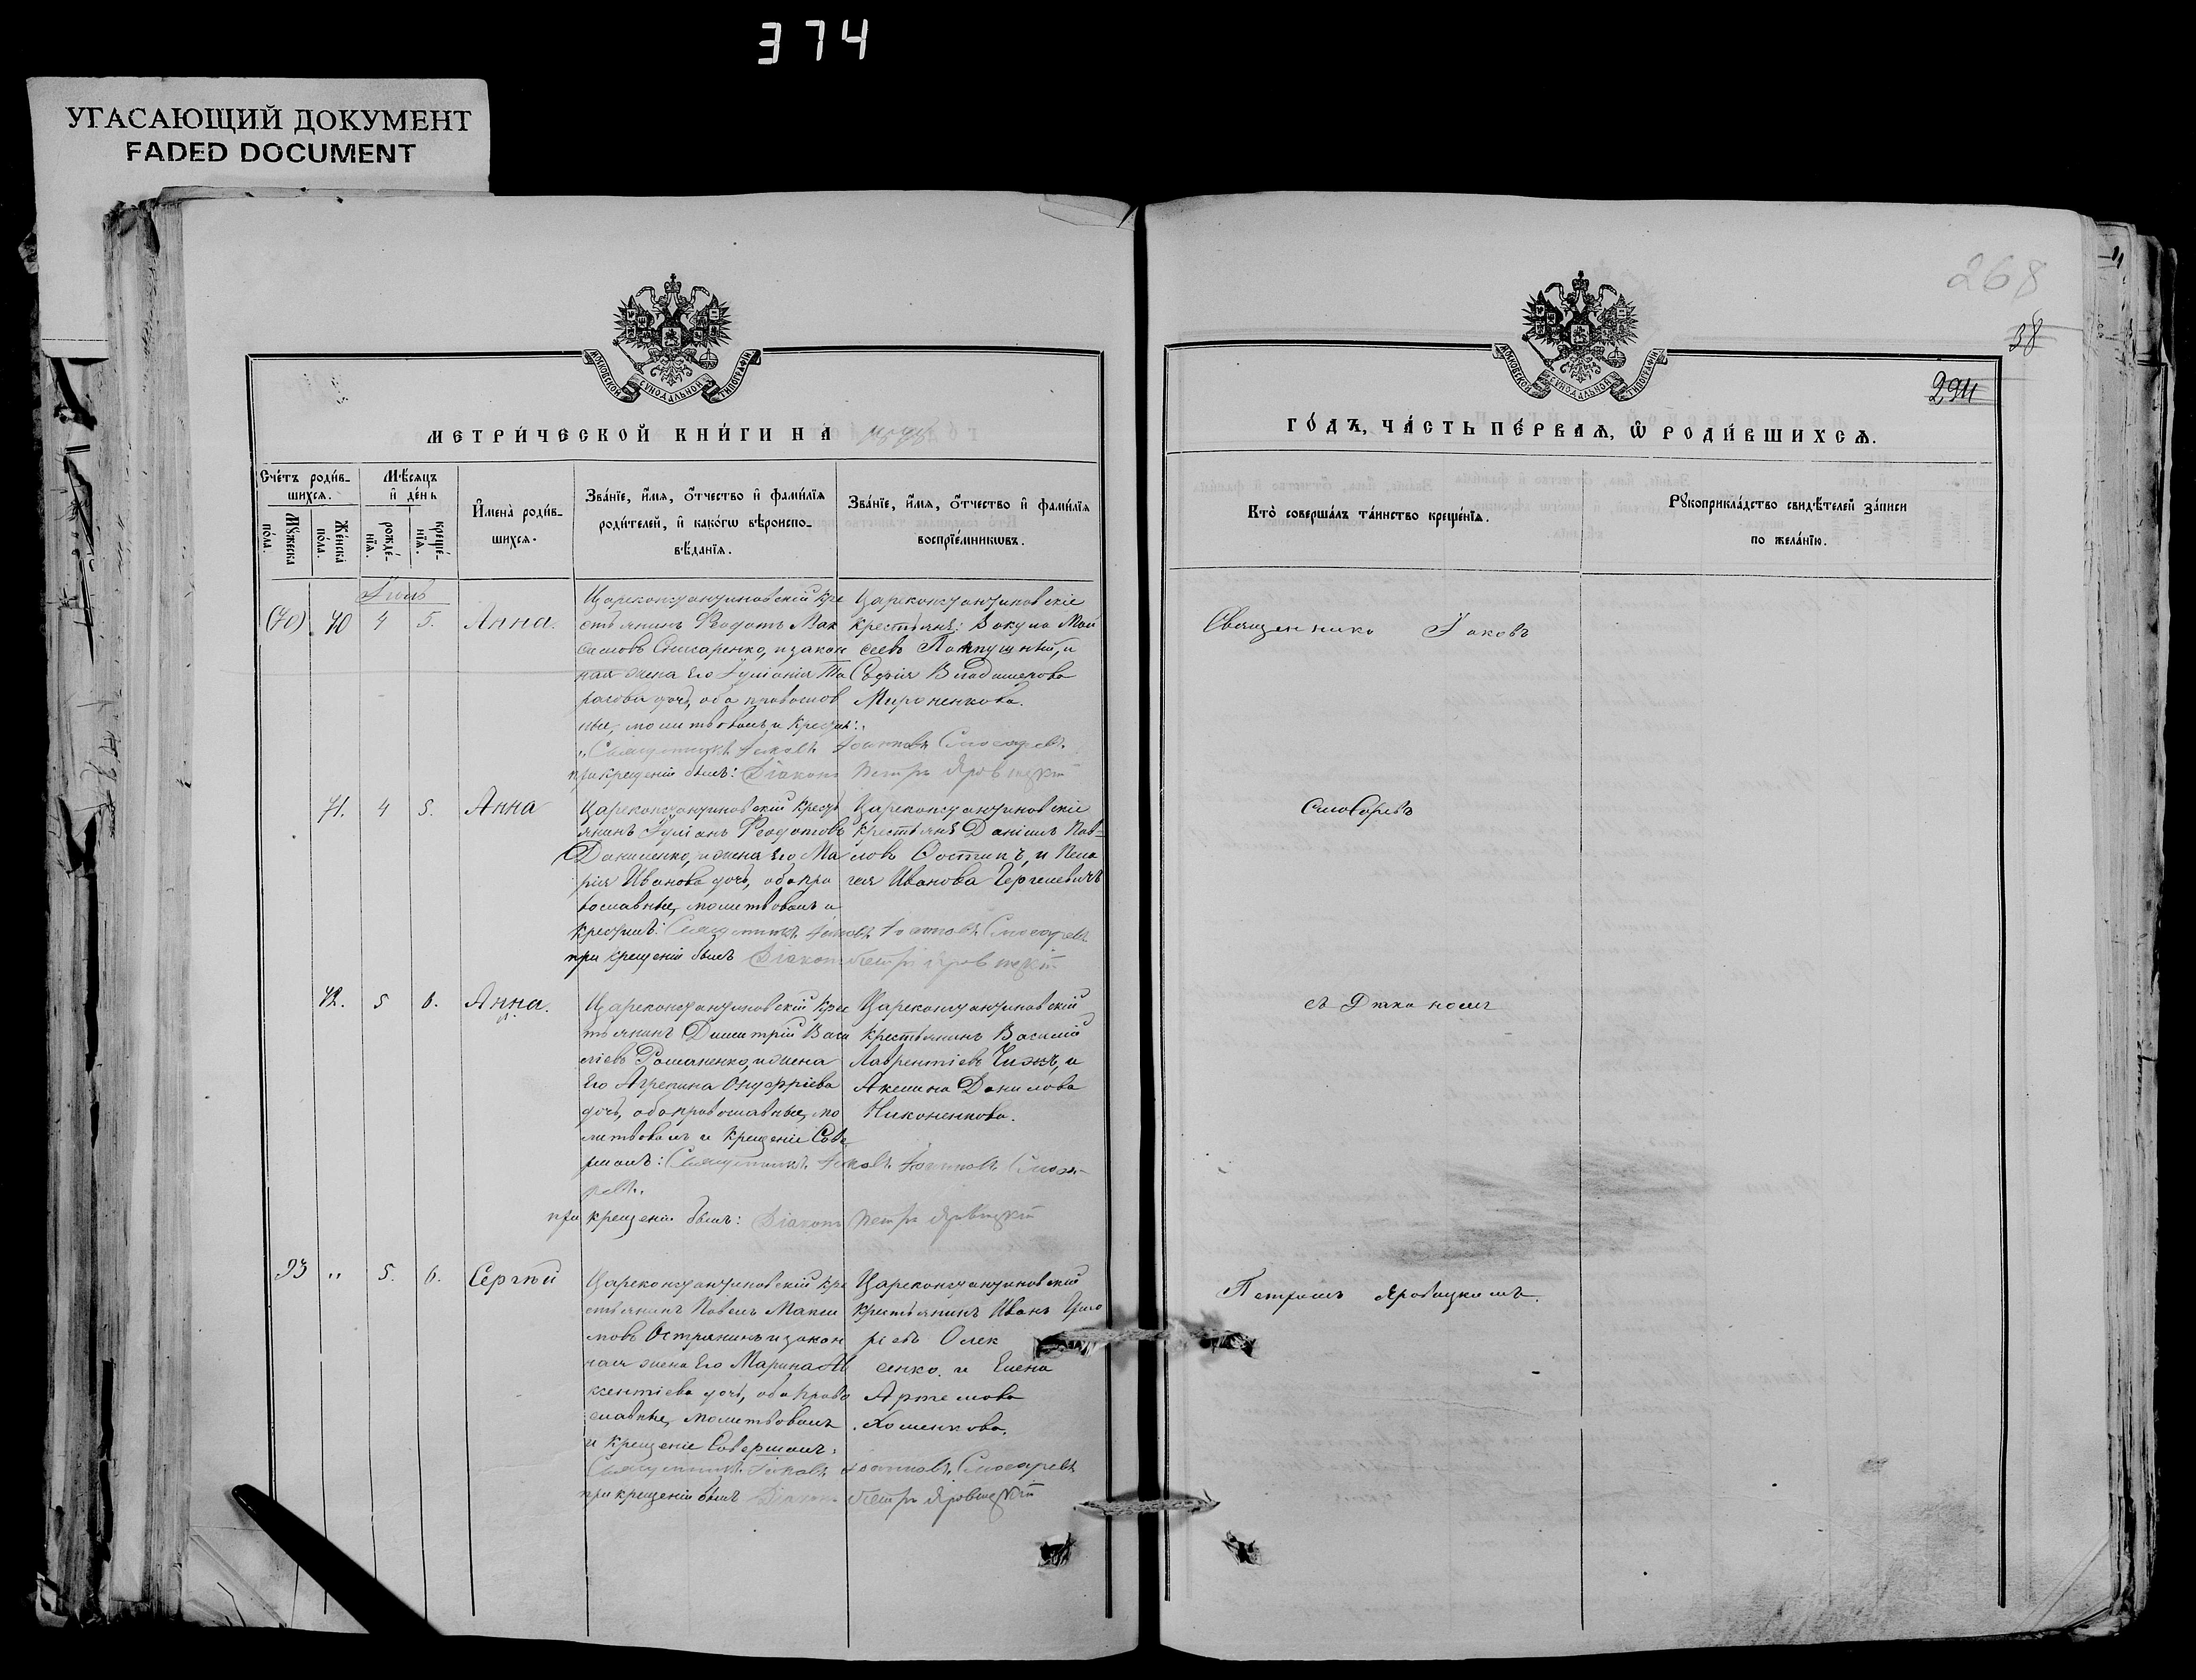 374
УГАСАЮЩИЙ ДОКУМЕНТ
FADED DOCUMENT
268
38
294
МОСКОВСКОЙ СѴНОДАЛЬНОЙ ТИПОГРАФІИ
МОСКОВСКОЙ СѴНОДАЛЬНОЙ ТИПОГРАФІИ
МЕТРИ́ЧЕСКОЙ КНИ́ГИ НА̀
ГО́ДЪ, ЧА́СТЬ ПЕ́РВАѦ, Ѡ҆ РОДИ́ВШИХСѦ.
Сче́тъ роди́в-
шихсѧ.
Мꙋ́жеска по́ла.
Же́нска по́ла.
Мѣ́сѧцъ
и҆ де́нь
рожде́-
нїѧ.
креще́-
нїѧ.
И҆мена̀ роди́в-
шихсѧ.
Зва́нїе, и҆́мѧ, ѻ҆́тчество и҆ фами́лїѧ
роди́телей, и҆ како́гѡ вѣроиспо-
вѣ́данїѧ.
Зва́нїе, и҆́мѧ, ѻ҆́тчество и҆ фами́лїѧ
воспрїе́мникѡвъ.
Кто̀ соверша́лъ та́инство креще́нїѧ.
Рꙋкоприкла́дство свидѣ́телей за́писи
по жела́нїю.
(70) 70 4 5. Анна.
Цареконстантиновскій кре
стьянинъ Ѳеодотъ Мак
симовъ Снисаренко, и закон
ная жена Его Іуліанія Та
расова дочь, оба православ
ные, молитвовалъ и крести:
Священникъ Іаковъ Іоанновъ Слюсаревъ
при крещеніи былъ: Діаконъ Петръ Яровицкій
Цареконстантиновскіе
крестьянѣ: Вакула Мои
сеевъ Попутный, и
Софія Владимерова
Мироненкова.
Священникъ Іаковъ
71. 4 5. Анна
Цареконстантиновскій крест
янинъ Іуліанъ Ѳеодотовъ
Даниленко, и жена Его Ма
рія Иванова дочь, оба пра
вославные, молитвовалъ и
крестилъ: Священникъ Іаковъ Іоанновъ Слюсаревъ
при крещеніи былъ Діаконъ Петръ Яровицкій
Цареконстантиновскіе
крестьянѣ Даніилъ Пав-
ловъ Остапъ, и Пела
гея Иванова
Слюсаревъ
72. 5 6. Анна.
Цареконстантиновскій крес
тьянинъ Димитрій Васи
ліевъ Романенко, и жена
Его Агрепина Онуфріева
дочь, оба православные, мо
литвовалъ и крещеніе Сове
ршалъ: Священникъ Іаковъ Іоанновъ Слюса-
ревъ.
при крещеніи былъ: Діаконъ Петръ Яровицкій
Цареконстантиновскій
крестьянинъ Василій
Лаврентіевъ Чижъ, и
Акилина Данилова
Никоненкова.
съ Діакономъ
93 " 5. 6. Сергѣй
Цареконстантиновскій кре
стьянинъ Павелъ Макси
мовъ Остряникъ и закон
ная жена Его Марина Ав
ксентіева дочь, оба право
славные, молитвовалъ
и крещеніе Совершалъ:
Священникъ Іаковъ Іоанновъ Слюсаревъ
при крещеніи былъ Діаконъ Петръ Яровицкій
Цареконстантиновскій
крестьянинъ Иванъ Григо
ріевъ Олек
сенко. и Елена
Артемова
Хоменкова.
Петромъ Яровицкимъ.